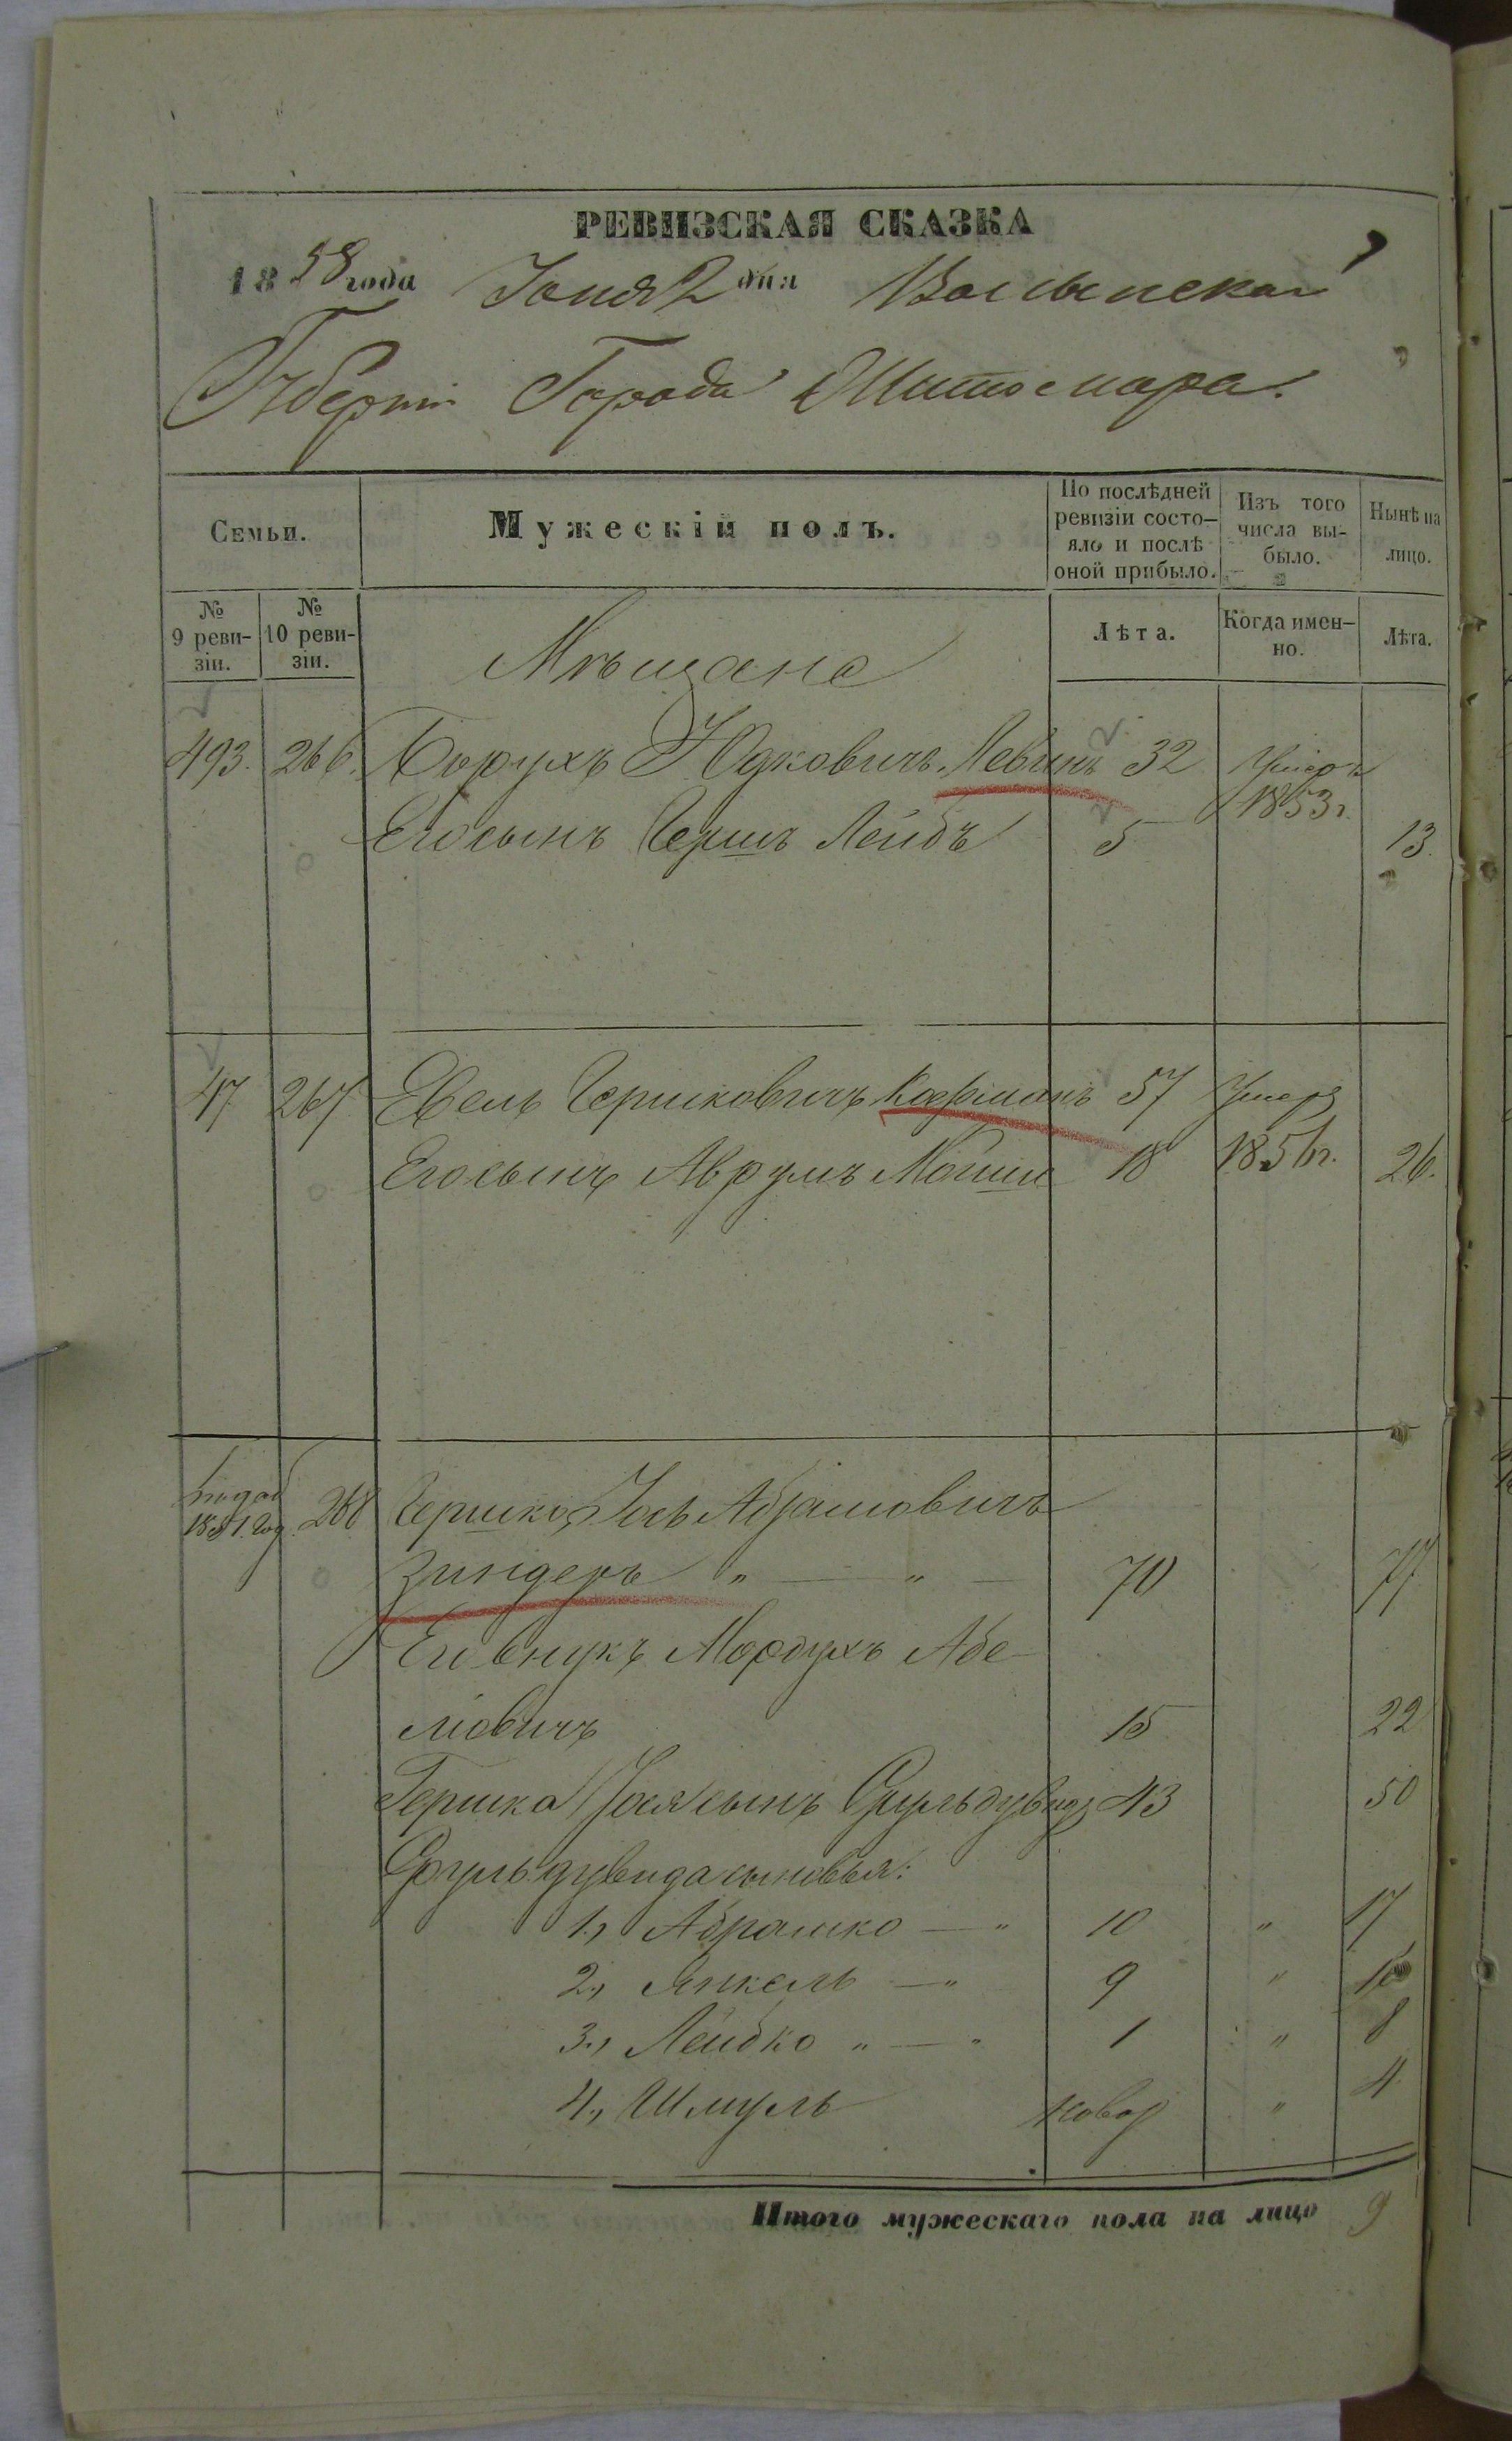 РЕВИЗСКАЯ СКАЗКА
1858 года Іюня 2 дня Волынской
Губерніи Города Житомира.
Семьи.
Мужескій полъ.
По послѣдней ревизіи состо-
яло и послѣ
оной прибыло.
Изъ того
числа вы-
было.
Нынѣ на
лицо.
№
9 реви-
зіи.
№
10 реви-
зіи.
Лѣта.
Когда имен-
но.
Лѣта.
Мѣщане
493. 266. Борухъ Юдковичъ Левинъ 32 Умеръ
1853 г.
Его сынъ Гершъ Лейбъ 5 13.
47 267 Евель Гершковичъ Кофманъ 57 Умеръ
Его сынъ Аврумъ Мошко 18 1856 г. 26.
1851 год. 268 Гершко Іось Абрамовичъ
Зингеръ " — " — 70 77
Его внукъ Мордухъ Абе-
ліовичъ 15 22
Гершка Іося сынъ Сруль Дувидъ 43 50
Сруль Дувида сыновья:
1., Абрашко — " 10 " 17
2., Янкель — " 9 " 16
3., Лейбко " — " 1 " 8
4., Шмуль новор " 4
Итого мужескаго пола на лицо 9